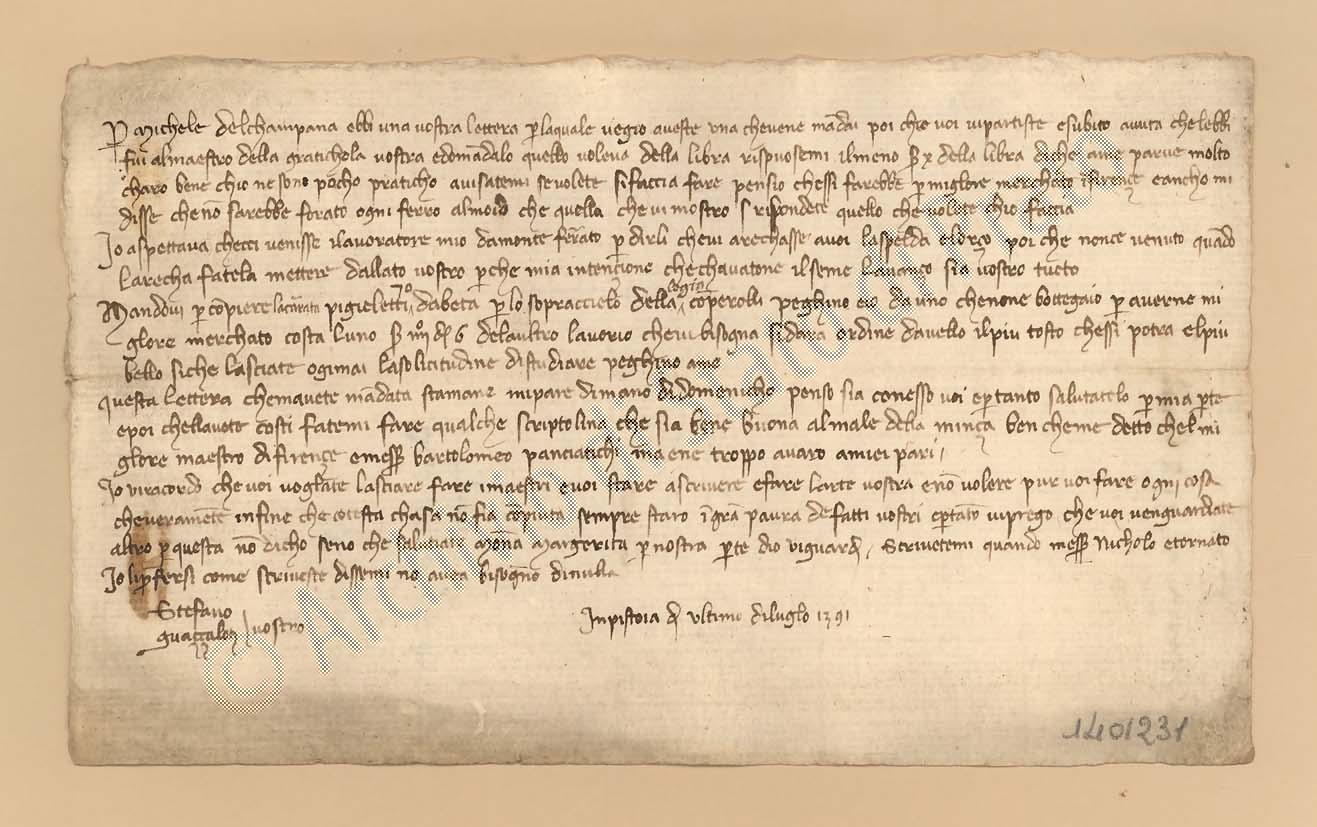 P Michele delchampana ebbi una vostra lettera plaquale vegio aveste una chevene mãdai poi chio voi vipartiste esubito avuta chelebbi
fui almaestro della gratichola vostra edomãdalo quello voleva della libra rispuosemi ilmeno β x della libra diche ame parve molto
charo bene chio ne sono pocho praticho avisatemi sevolete sifaccia fare pensio chessi farebbe p miglore merchato ifirençe eancho mi
disse chenõ sarebbe forato ogni ferro almodo che quella chevi mostro rispondete quello che volete chio faccia
Io aspettava checci venisse ilavoratore mio damonte ferato p dirli chevi arechasse avoi laspelda elorço poi che nonce venuto quãdo
larecha fatela mettere dallato vostro pche mia intençione che chavatone ilseme lavanço sia vostro tucto
Manddovi p cõpiere pigieletti 70 dabeta p lo sopraccielo della logia cõperolli peghino eio da uno chenone bottegaio p averne mi
glore merchato costa luno β iiij d 6 delaultro lavorio chevi bisogna sidara ordine davello ilpiu tosto chessi potra elpiu
bello siche lasciate ogimai lasolicitudine distudiare peghino ame
questa lettera chemavete mãdata stamane mipare dimano didomenicho penso sia conesso voi eptanto salutatelo p mia pte
epoi chellavete costi fatemi fare qualche scriptolina che sia bene buona almale della minça ben cheme detto chelmi
glore maestro difirençe emess bartolomeo panciatichi ma ene troppo avaro amiei pari
Io viracordo che voi voglate lasciare fare imaestri evoi stare ascrivere efare larte vostra enõ volere pur voi fare ogni cosa
cheveramẽte infine che cotesta chasa nõ fia cõpiuta sempre staro ĩ grã paura defatti vostri eptãto viprego che voi venguardiate
altro p questa nõ dicho seno che salutiate Mõna Margerita p nostra pte dio viguardi Scrivetemi quando mess Nicholo etornato
Io lipfersi come scriveste dissemi no avea bisogno dinulla
Stefano
guaççaloti vostro
Inpistoia dì ultimo diluglo 1391
© Archivio di Stato di Prato
1401231